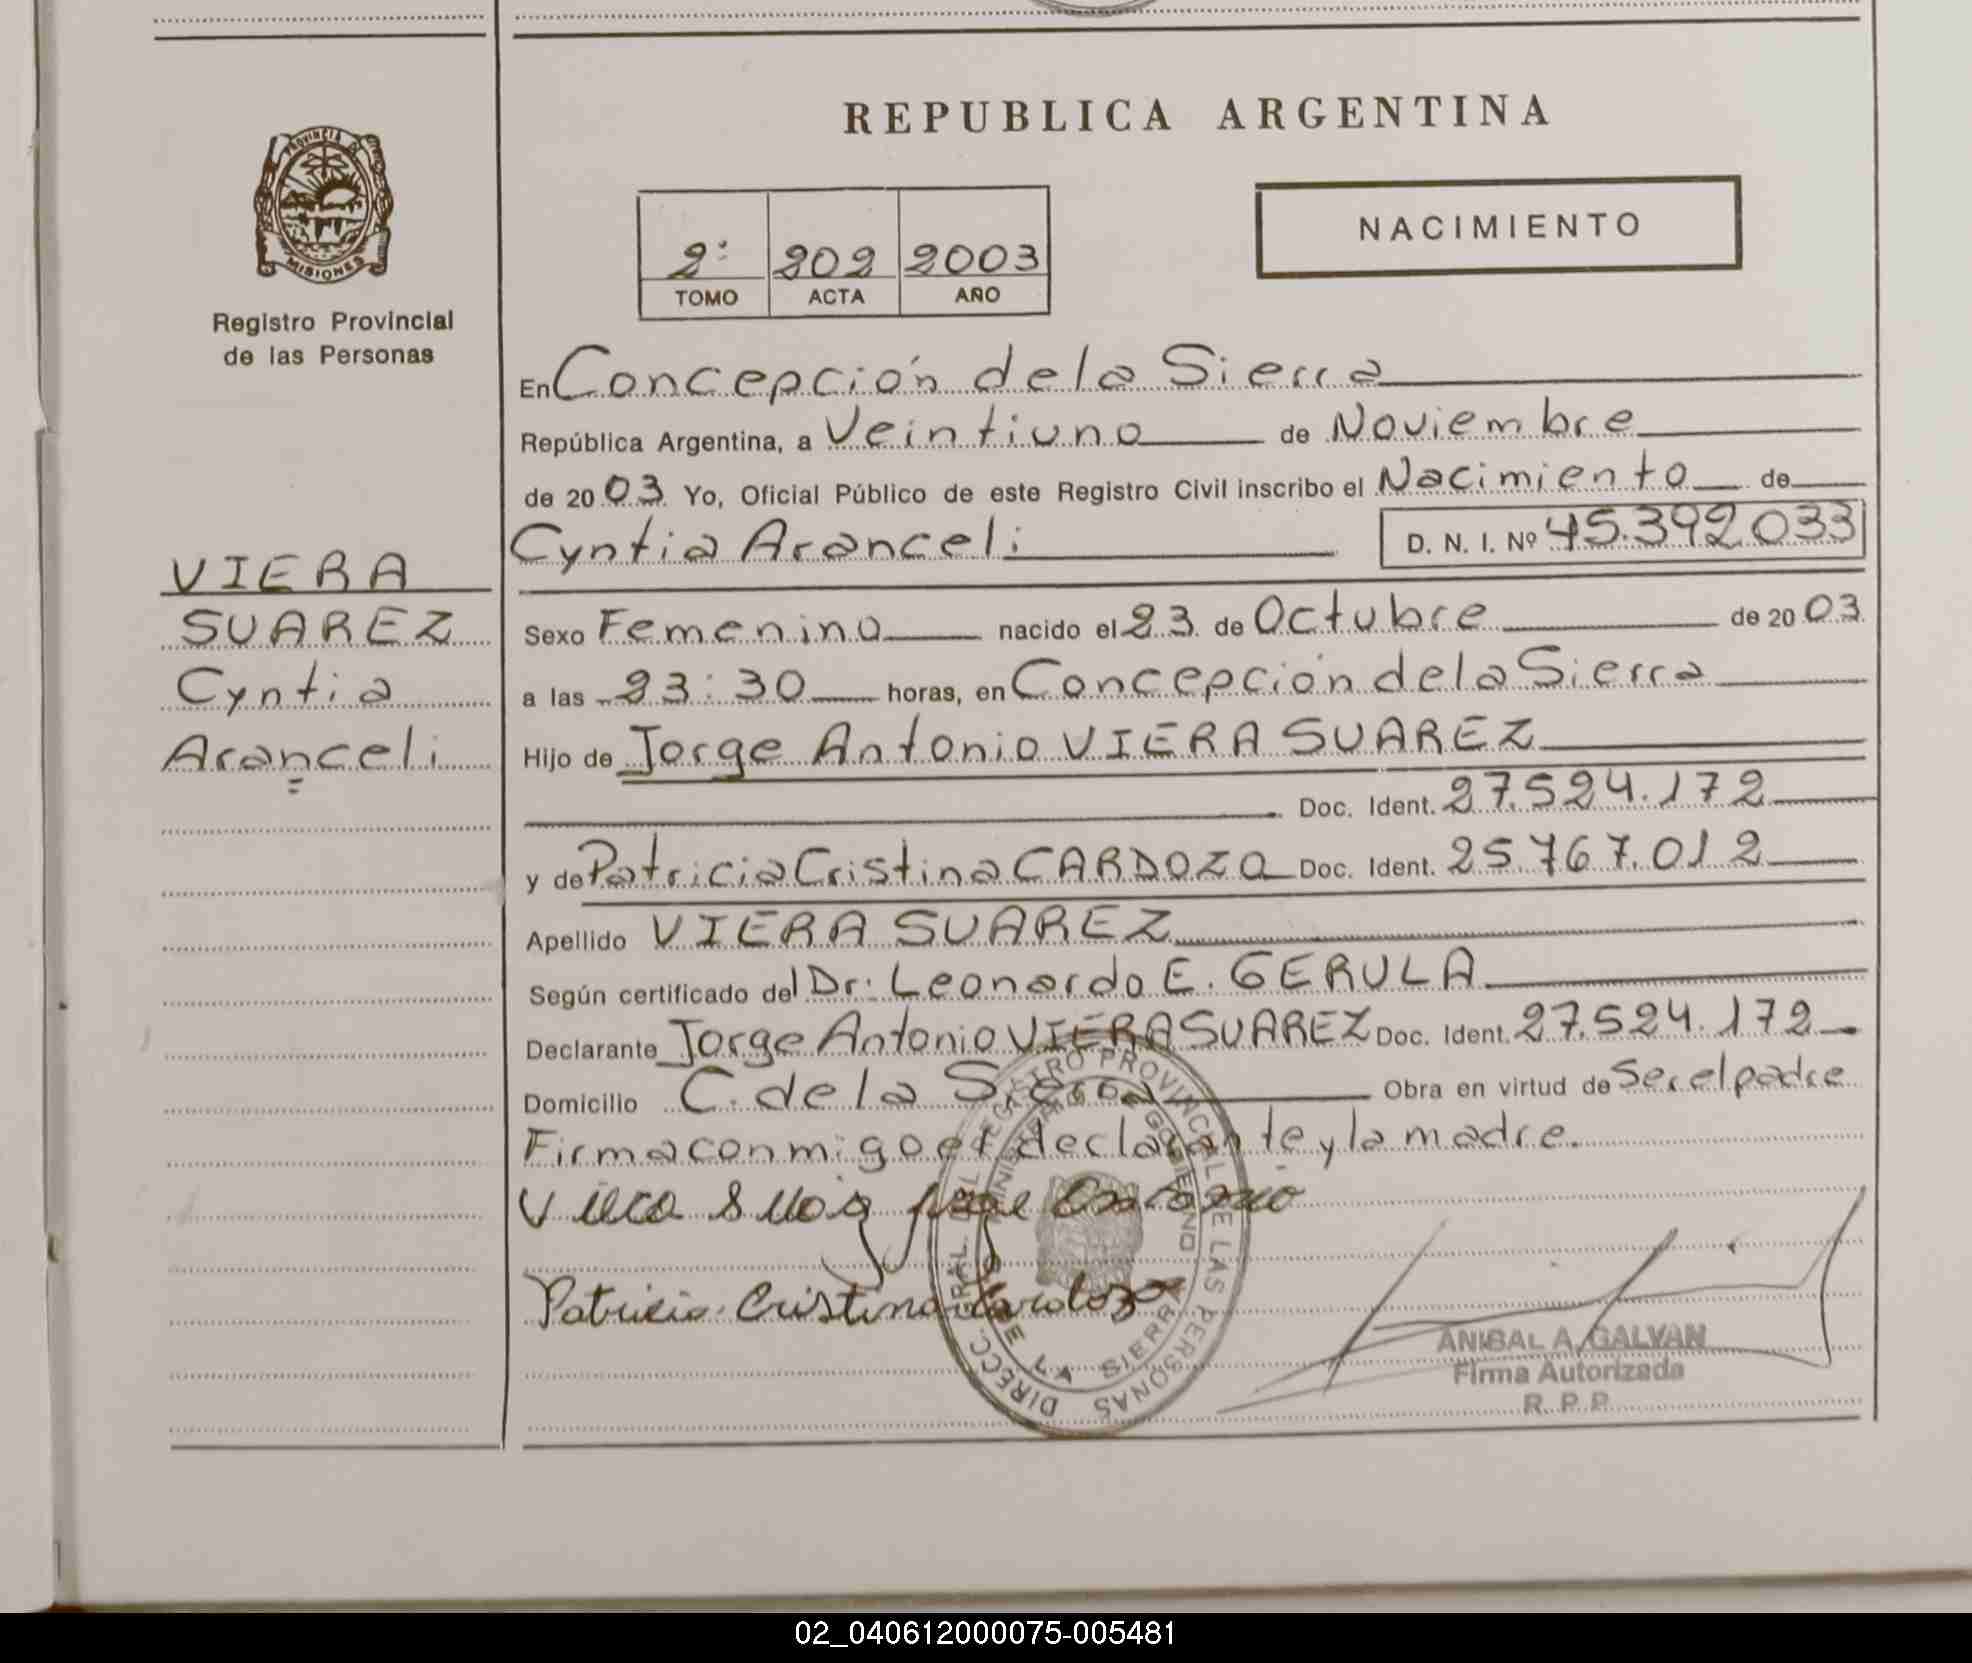 REPUBLICA ARGENTINA
PROVINCIA DE
MISIONES
Registro Provincial
de las Personas
NACIMIENTO
2º 202 2003
TOMO ACTA AÑO
En Concepción de la Sierra
República Argentina, a Veintiuno de Noviembre
de 2003 Yo, Oficial Público de este Registro Civil inscribo el Nacimiento de
Cyntia Aranceli D. N. I. Nº 45.392033
VIERA
SUAREZ
Cyntia
Aranceli
Sexo Femenino nacido el 23 de Octubre de 2003
a las 23:30 horas, en Concepción de la Sierra
Hijo de Jorge Antonio VIERA SUAREZ
Doc. Ident. 27.524.172
y de Patricia Cristina CARDOZO Doc. Ident. 25.767.012
Apellido VIERA SUAREZ
Según certificado del Dr. Leonardo E. GERULA
Declarante Jorge Antonio VIERA SUAREZ Doc. Ident. 27.524.172
Domicilio C. de la Sierra Obra en virtud de Ser el padre
Firma conmigo el declarante y la madre.
Jorge Antonio
Patricia Cristina Cardozo
DIRECC. GRAL. DEL REGISTRO PROVINCIAL DE LAS PERSONAS
MINISTERIO DE GOBIERNO
SIERRA
ANIBAL A. GALVAN
Firma Autorizada
R. P. P.
02_040612000075-005481